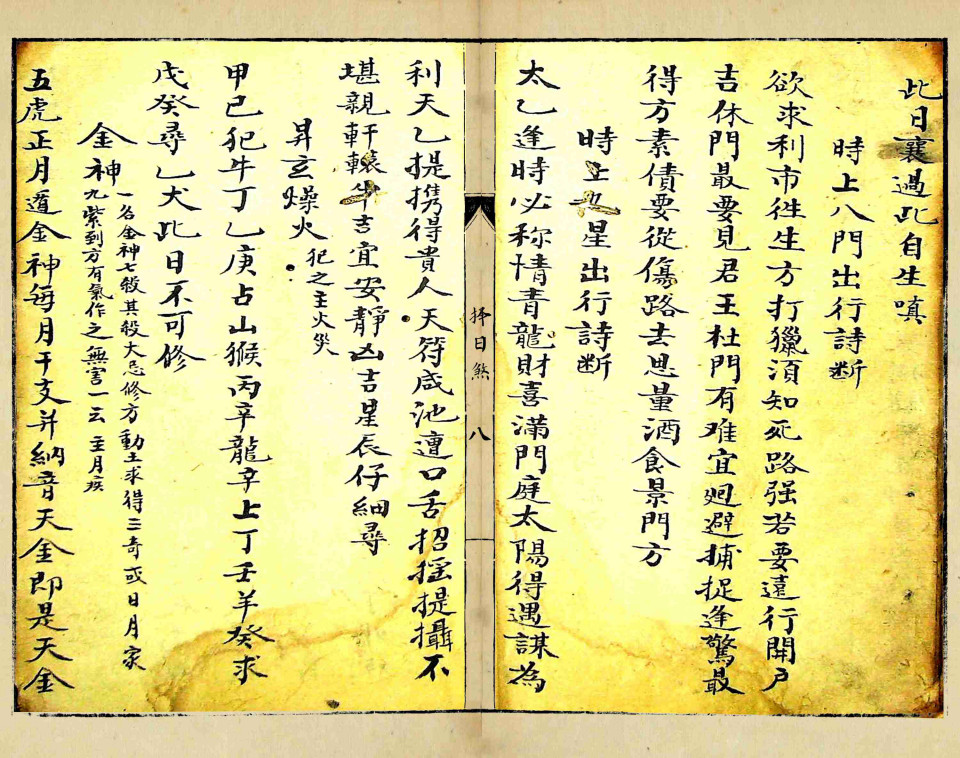 此日襄過此自生嗔
時上八門出行詩断
欲求利市徃生方打獵須知死路强若要遠行開户
吉休門最要見君王杜門有难宜廻避捕捉逢驚最
得方素債要從傷路去思量酒食景門方
時上九星出行詩断
太乙逢時必称情青龍財喜滿門庭太陽得遇謀為
擇日煞
八
利天乙提携得貴人天符咸池遭口舌招摇提攝不
堪親軒轅半吉宜安靜凶吉星辰仔細尋
昇玄燥火 犯之主火災
甲已犯牛丁乙庚占山猴丙辛龍辛上丁壬羊癸求
戊癸尋乙犬此日不可修
金神 一名金神七殺其殺大忌修方動土求得三奇或日月家
九紫到方有氣作之無害一云主月疾
五虎正月遁金神每月干支并納音天金即是天金